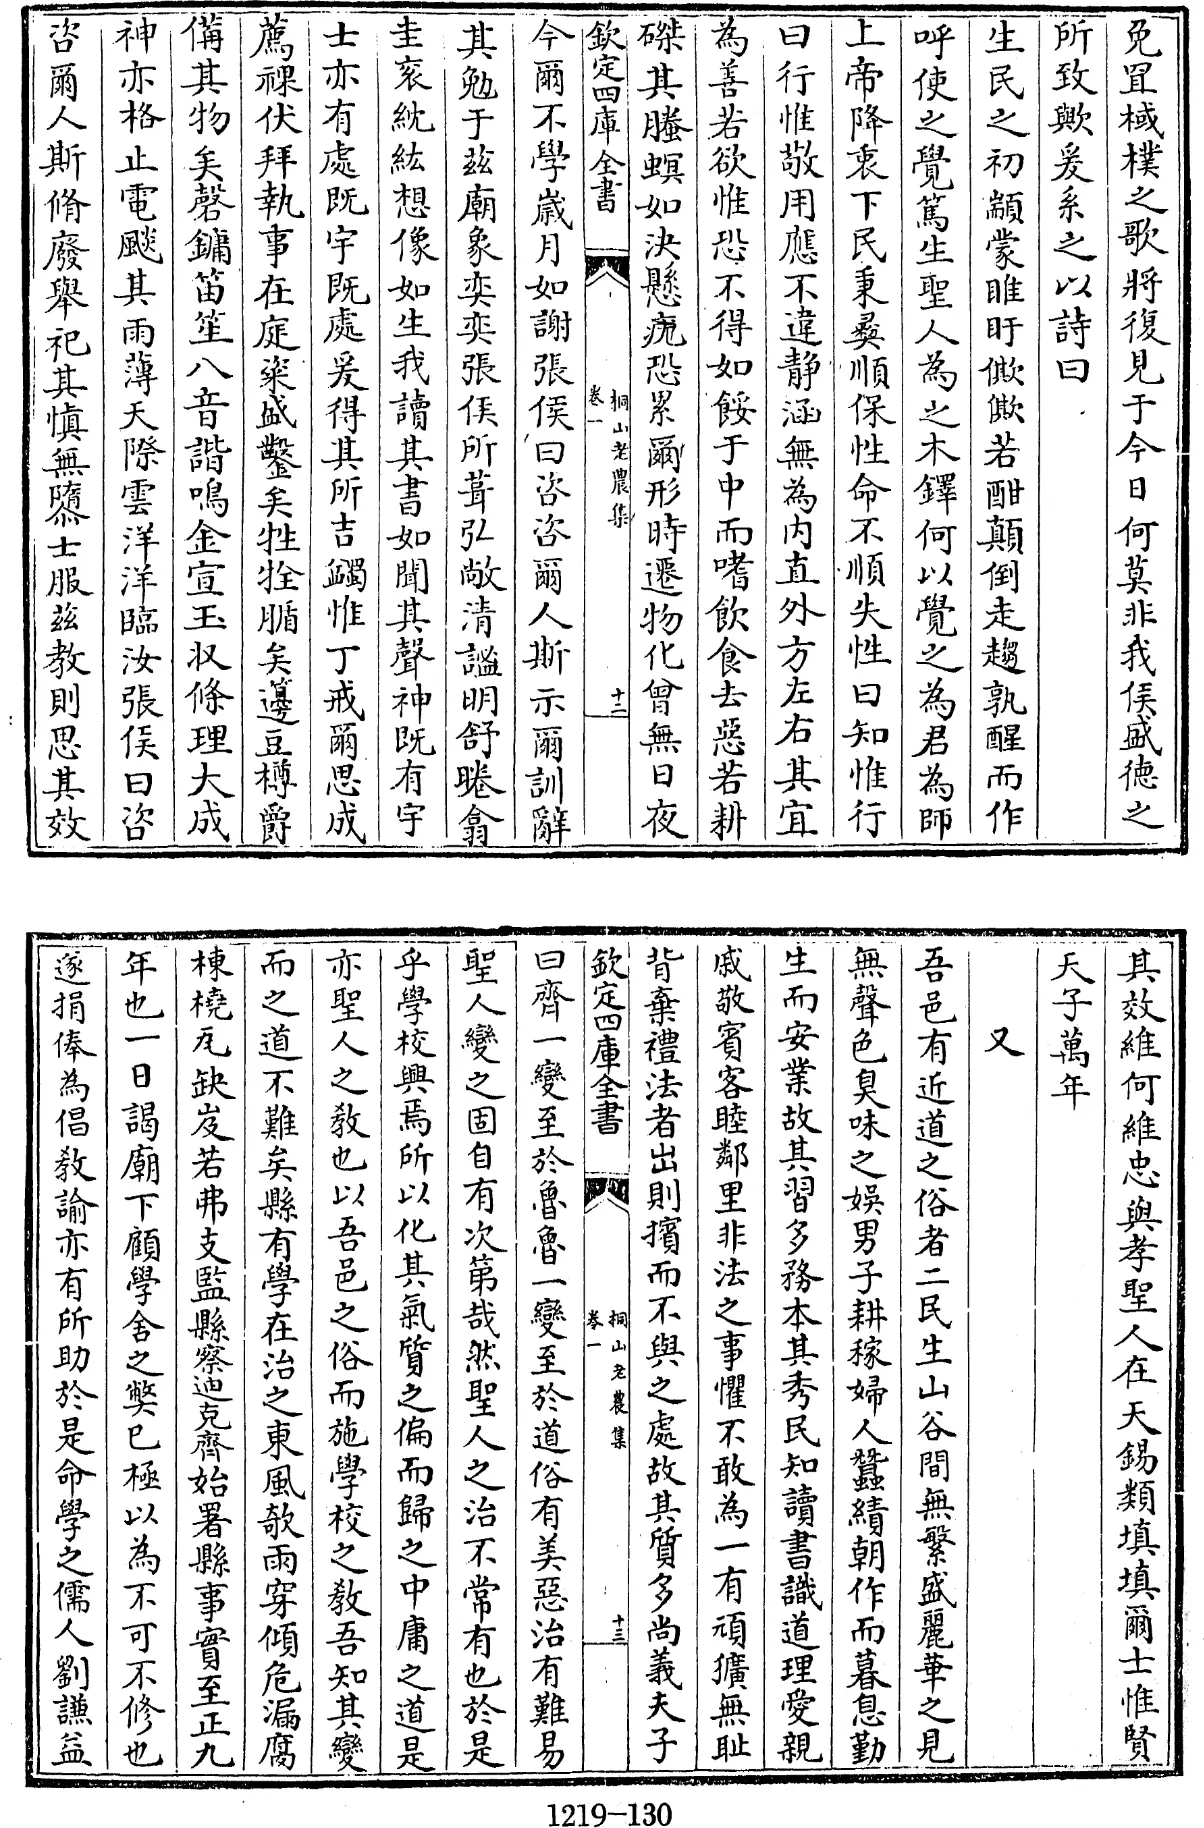 免罝棫樸之歌將復見于今日何莫非我侯盛德之
所致歟爰系之以詩曰
生民之初顓蒙睢盱僛僛若酣顛倒走趨孰醒而作
呼使之覺篤生聖人為之木鐸何以覺之為君為師
上帝降衷下民秉彝順保性命不順失性曰知惟行
曰行惟敬用應不違静涵無為内直外方左右其宜
為善若欲惟恐不得如餒于中而嗜飲食去惡若耕
磔其螣螟如决懸疣恐累爾形時遷物化曾無日夜
欽定四庫全書
桐山老農集
卷一
十二
今爾不學歲月如謝張侯曰咨咨爾人斯示爾訓辭
其勉于兹廟象奕奕張侯所葺弘敞清謐明舒晻翕
圭衮紞紘想像如生我讀其書如聞其聲神既有宇
士亦有處既宇既處爰得其所吉蠲惟丁戒爾思成
薦祼伏拜執事在庭粢盛鑿矣牲牷腯矣籩豆樽爵
備其物矣磬鏞笛笙八音諧鳴金宣玉収條理大成
神亦格止電颷其雨薄天際雲洋洋臨汝張侯曰咨
咨爾人斯脩廢舉祀其慎無隳士服兹教則思其效
其效維何維忠與孝聖人在天錫類填填爾士惟賢
天子萬年
又
吾邑有近道之俗者二民生山谷間無繁盛麗華之見
無聲色臭味之娯男子耕稼婦人蠶績朝作而暮息勤
生而安業故其習多務本其秀民知讀書識道理愛親
戚敬賓客睦鄰里非法之事懼不敢為一有頑獷無耻
背棄禮法者出則擯而不與之處故其質多尚義夫子
欽定四庫全書
桐山老農集
卷一
十三
曰齊一變至於魯魯一變至於道俗有美惡治有難易
聖人變之固自有次第哉然聖人之治不常有也於是
乎學校興焉所以化其氣質之偏而歸之中庸之道是
亦聖人之教也以吾邑之俗而施學校之教吾知其變
而之道不難矣縣有學在治之東風欹雨穿傾危漏腐
棟橈瓦缺岌若弗支監縣察迪克齊始署縣事實至正九
年也一日謁廟下顧學舍之弊已極以為不可不修也
遂捐俸為倡教諭亦有所助於是命學之儒人劉謙益
1219-130